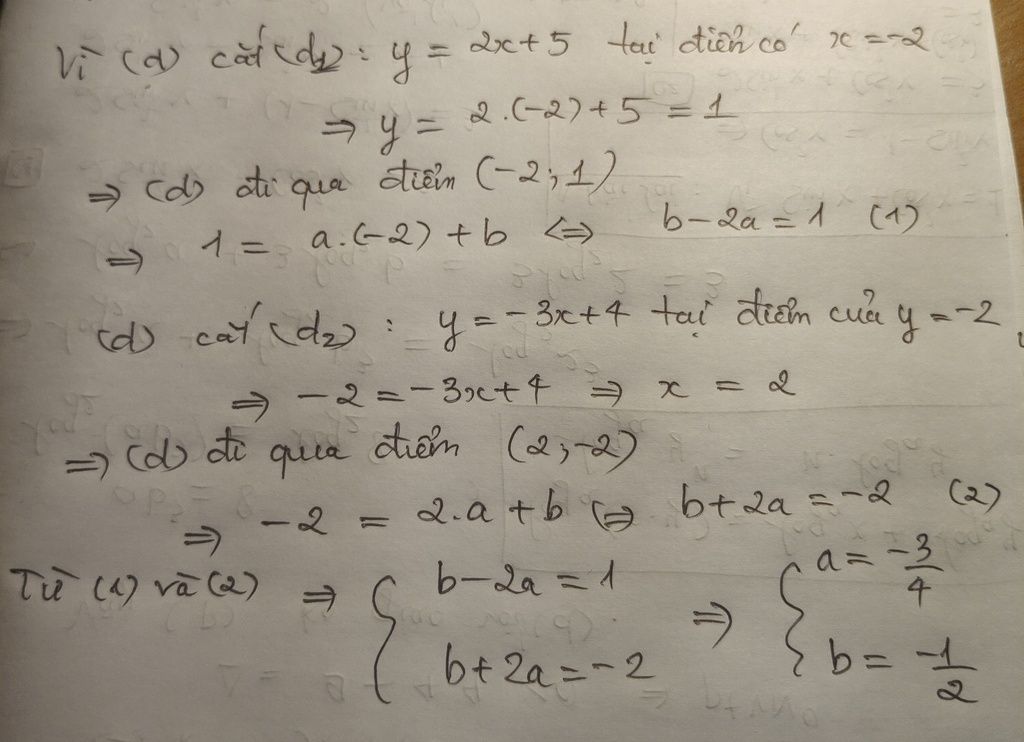 Vì (d) cắt (d1): y = 2x+5 tại điểm có x = -2
⇒ y = 2.(-2)+5 = 1
⇒ (d) đi qua điểm (-2;1)
⇒ 1 = a.(-2)+b ⇔ b-2a = 1 (1)
(d) cắt (d2): y = -3x+4 tại điểm của y = -2
⇒ -2 = -3x+4 ⇒ x = 2
⇒ (d) đi qua điểm (2;-2)
⇒ -2 = 2.a+b ⇔ b+2a = -2 (2)
Từ (1) và (2) ⇒ { b-2a = 1 ⇒ { a = -3/4
b+2a = -2 b = -1/2